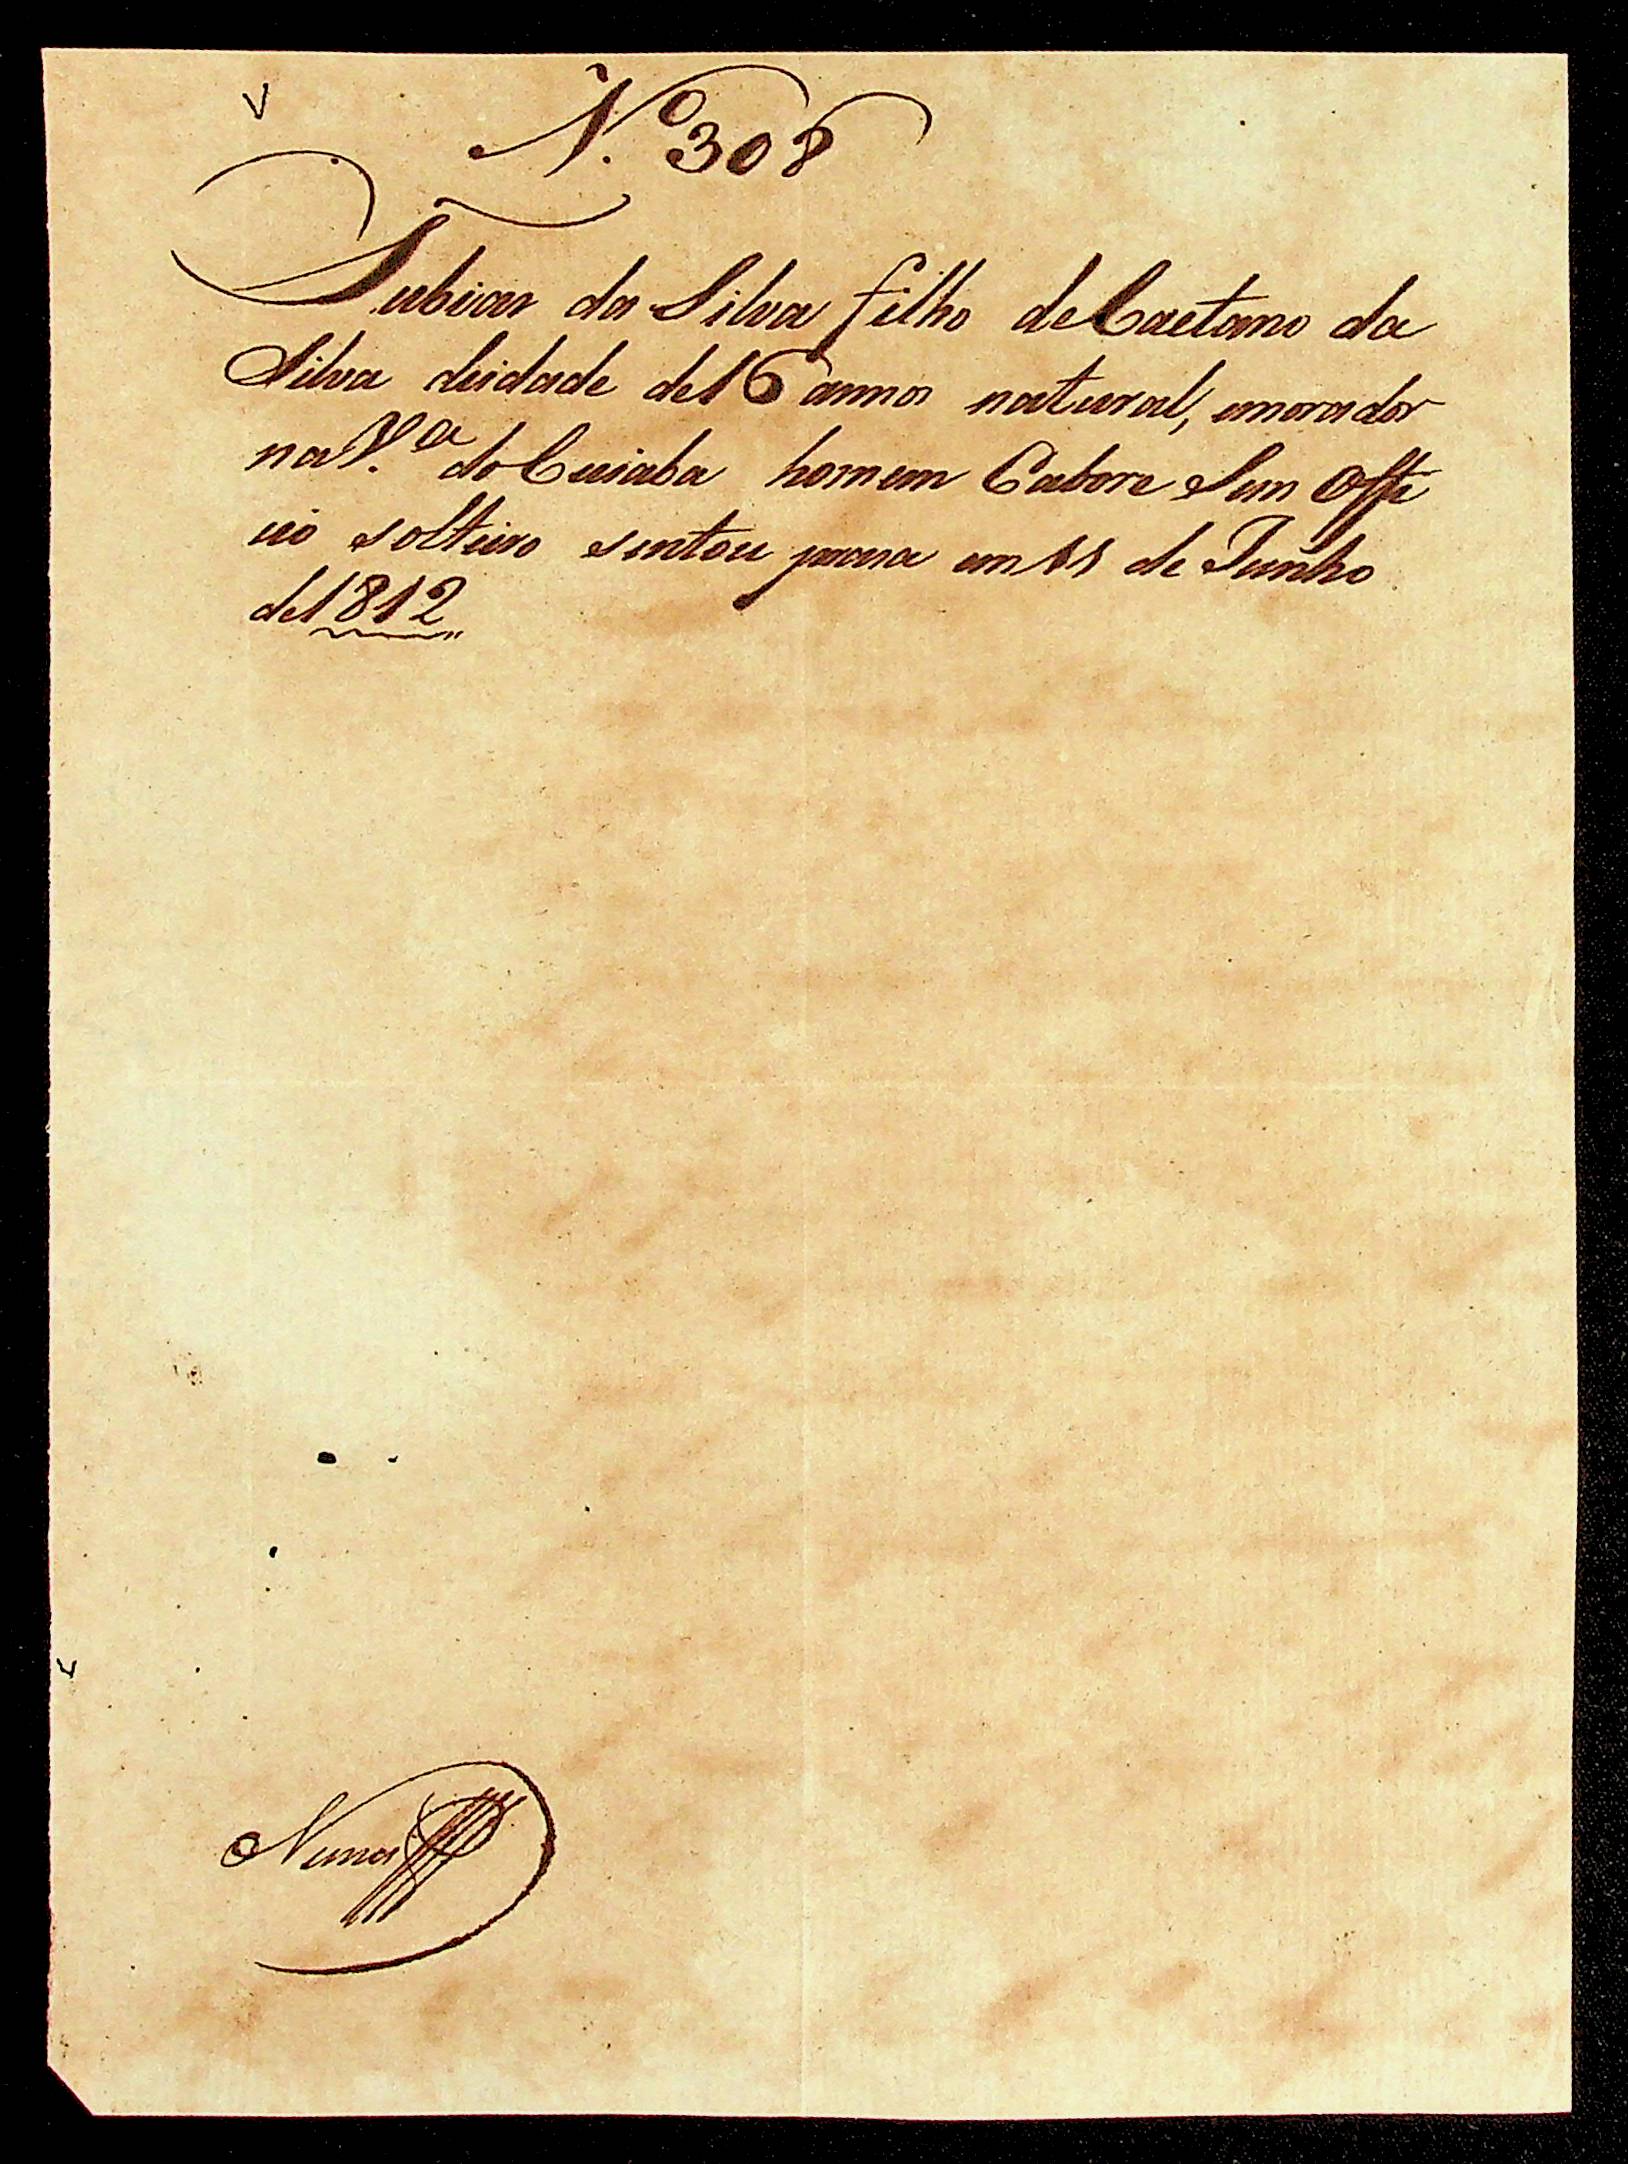 V
N.º 308
Tubias da Silva filho de Caetano da
Silva deidade de 16 annos natural, emorador
na V.ª do Cuiaba homem Cabore Sem Offi
cio solteiro sentou praca em 11 de Junho
de 1812
Nunes